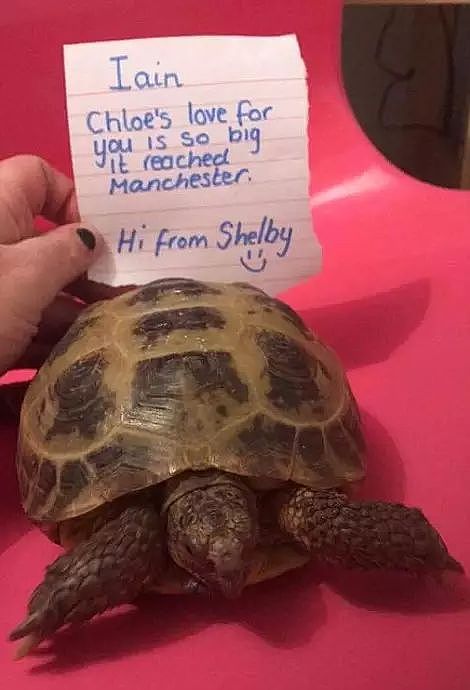 Iain
Chloe's love for
you is so big
it reached
Manchester.
Hi from Shelby